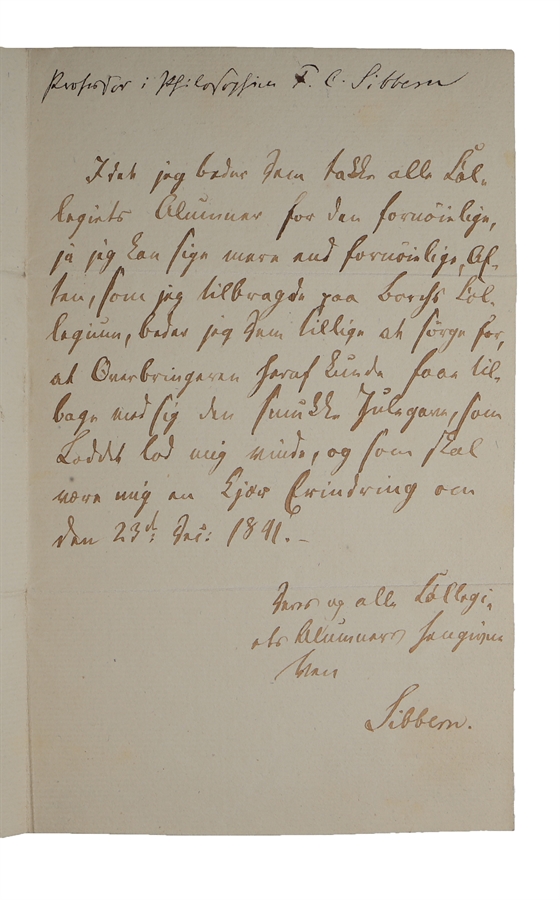 Professor i Philosophien F. C. Sibbern
Idet jeg beder Dem takke alle Col-
legiets Alumner for den fornøielige,
ja jeg kan sige mere end fornøielige, Af-
ten, som jeg tilbragde paa Borchs Col-
legium, beder jeg Dem tillige at sørge for,
at Overbringeren heraf kunde faae til-
bage med sig den smukke Julegave, som
Loddet lod mig vinde, og som skal
være mig en kjær Erindring om
den 23d: Dec: 1841.-
Deres og alle Collegi-
ets Alumners hengivne
Ven
Sibbern.